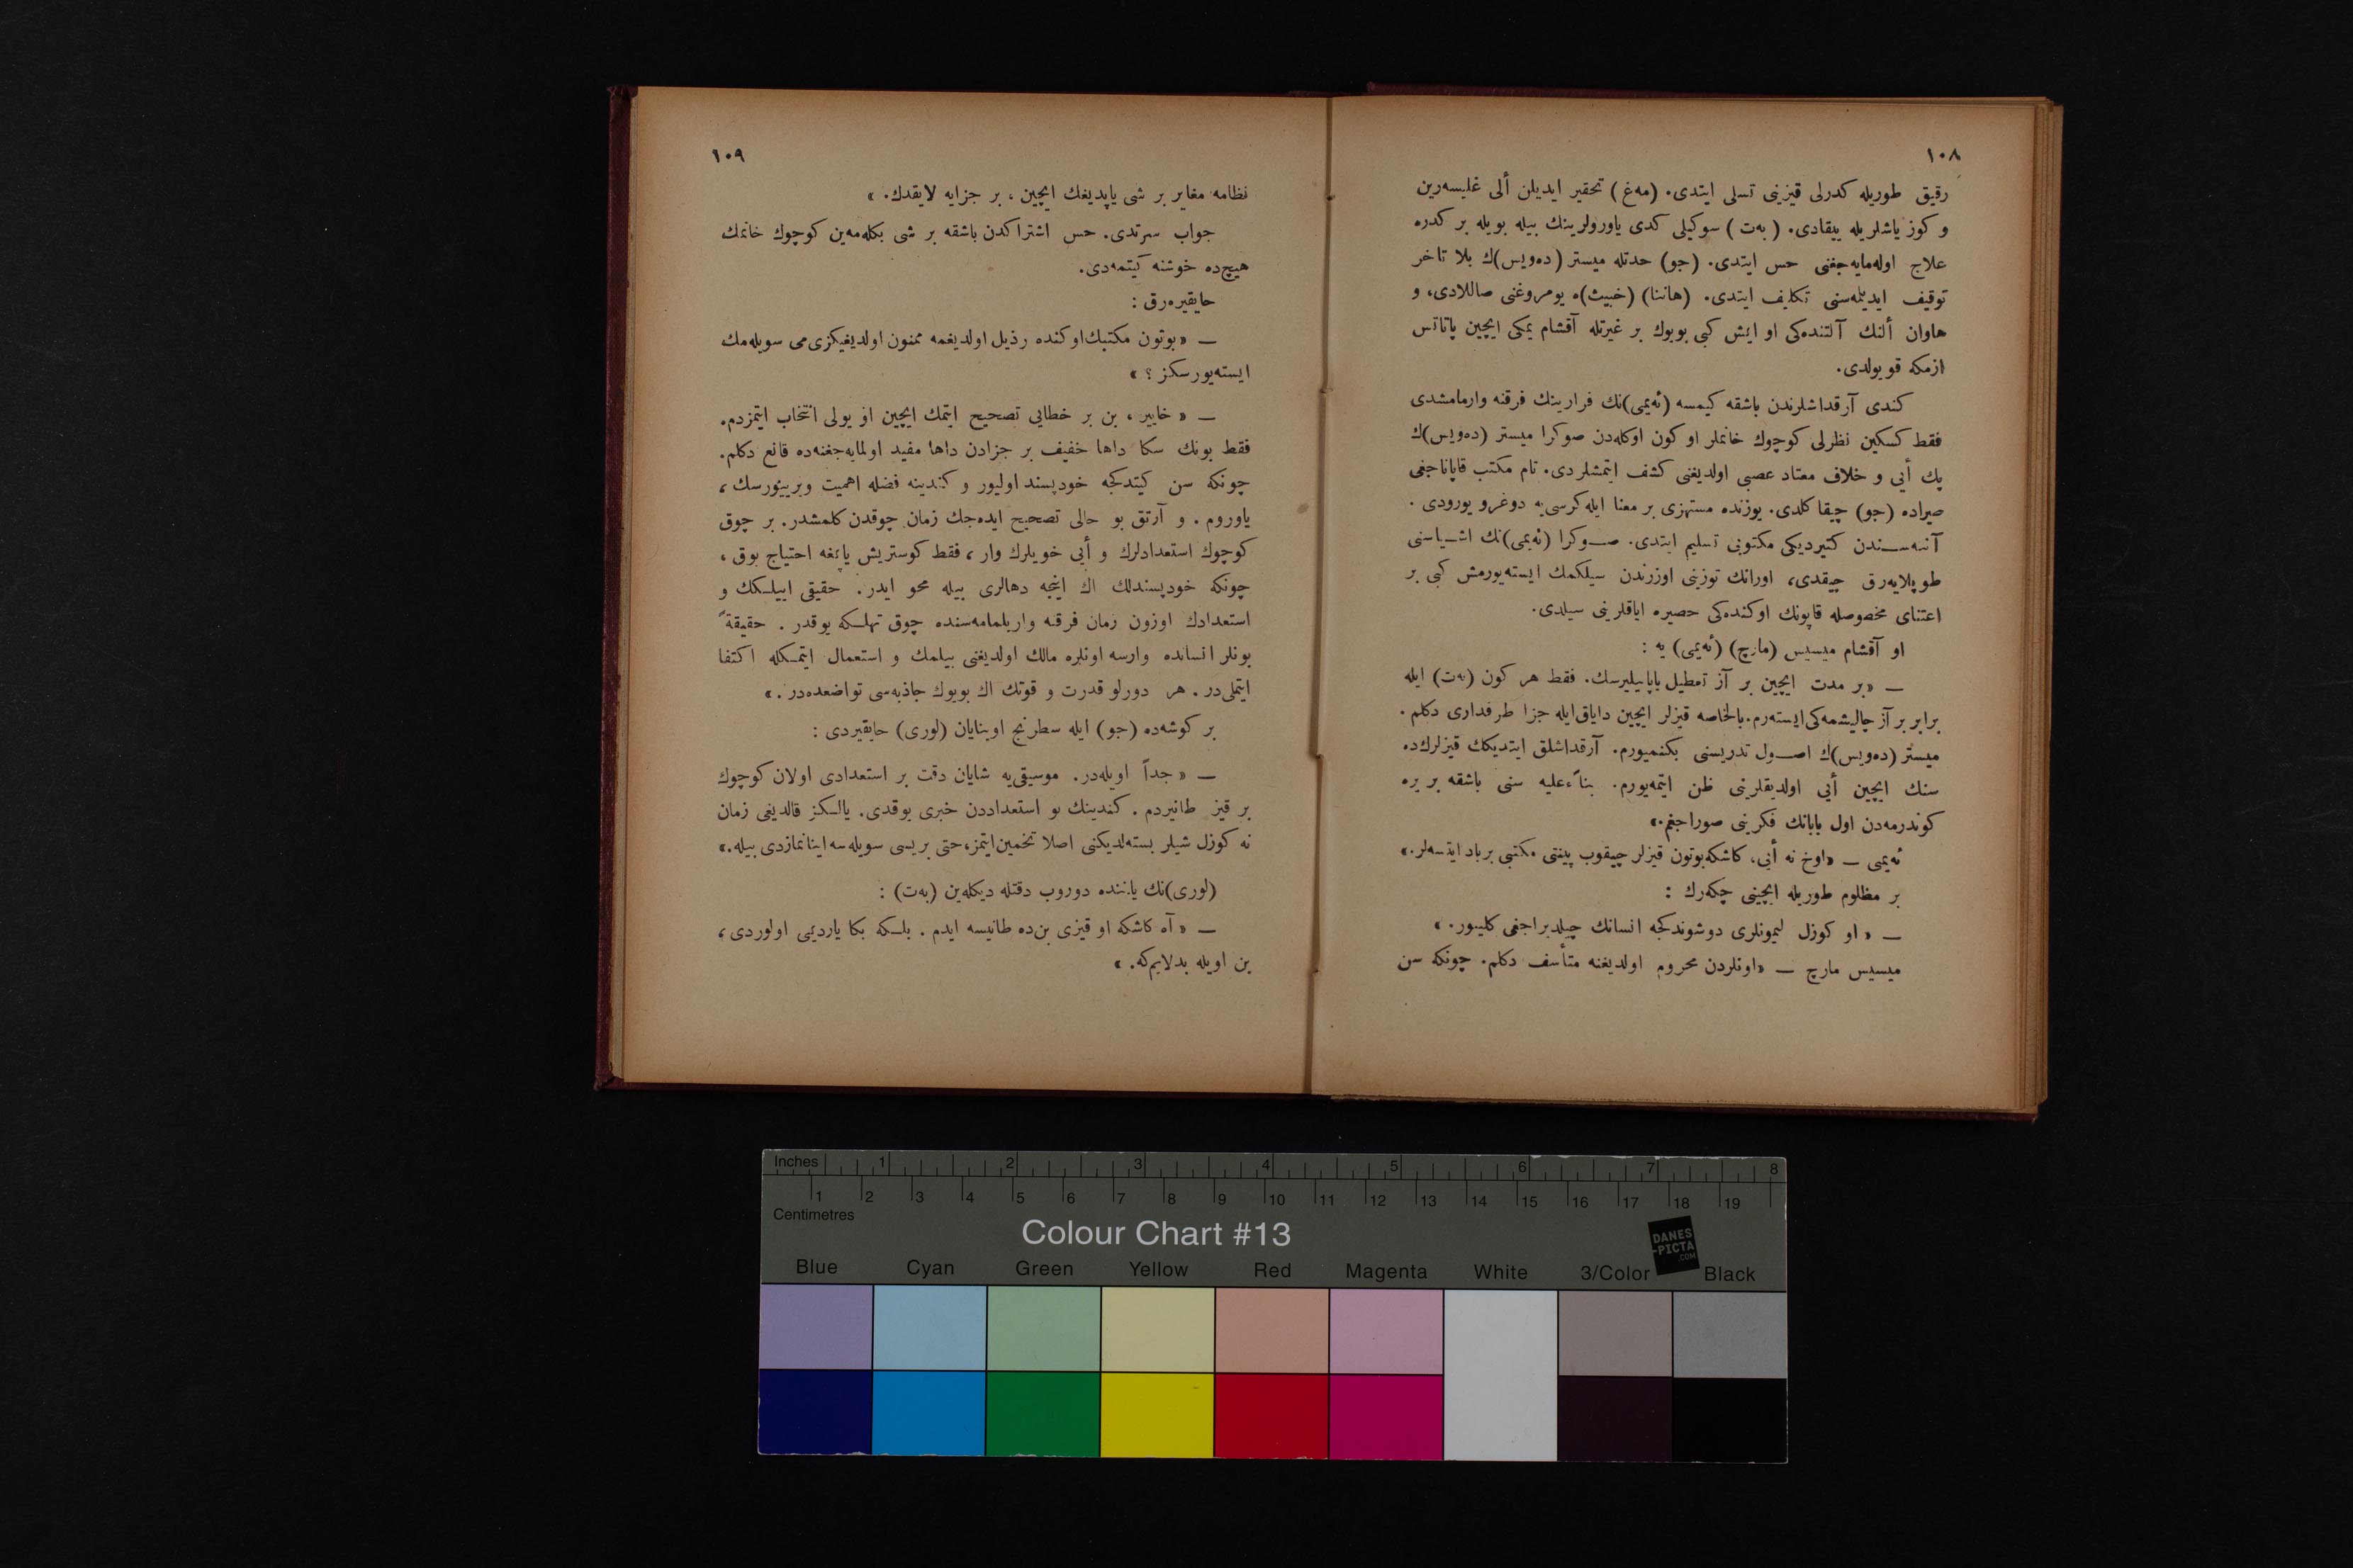 ١٠٨
رقيق طوريله كدرلى قيزينى تسلى ايتدى. (مه‌غ) تحقير ايديلن ألى غليسه‌رين
و كوز ياشلريله ييقادى. (به‌ت) سوكيلى كدى ياورولرينك بيله بويله بر كدره
علاج اوله‌مايه‌جغنى حس ايتدى. (جو) حدتله ميستر (ده‌ويس)ك بلا تاخر
توقيف ايديلمه‌سنى تكليف ايتدى. (هاننا) (خبيث)ه يومروغنى صاللادى، و
هاوان ألنك آلتنده‌كى او ايمش كبى بويوك بر غيرتله آقشام يمكى ايچين پاتاتس
ازمكه قويولدى.
كندى آرقداشلرندن باشقه كيمسه (ئه‌يمى)نك فرارينك فرقنه وارمامشدى
فقط كسكين نظرلى كوچوك خانملر او كون اوكله‌دن صوكرا ميستر (ده‌ويس)ك
پك أيى و خلاف معتاد عصبى اولديغنى كشف ايتمشلردى. تام مكتب قاپاناجغى
صيراده (جو) چيقا كلدى. يوزنده مستهزى بر معنا ايله كرسى‌يه دوغرو يورودى .
آننه‌سندن كتيرديكى مكتوبى تسليم ايتدى. صوكرا (ئه‌يمى)نك اشياسنى
طوپلايه‌رق چيقدى، اورانك توزينى اوزرندن سيلكمك ايسته‌يورمش كبى بر
اعتناى مخصوصله قاپونك اوكنده‌كى حصيره اياقلرينى سيلدى.
او آقشام ميسيس (مارچ) (ئه‌يمى) يه :
— «بر مدت ايچين بر آز تعطيل ياپابيليرسك. فقط هر كون (به‌ت) ايله
برابر بر آز چاليشمه‌كى ايسته‌رم. بالخاصه قيزلر ايچين داياق ايله جزا طرفدارى دكلم .
ميستر (ده‌ويس)ك اصول تدريسنى بكنميورم. آرقداشلق ايتديكك قيزلرك‌ده
سنك ايچين أيى اولديقلرينى ظن ايتمه‌يورم. بناءً عليه سنى باشقه بر يره
كوندرمه‌دن اول بابانك فكرينى صوراجغم.»
ئه‌يمى — «اوخ نه أيى، كاشكه بوتون قيزلر چيقوب پينتى مكتبى برباد ايتسه‌لر.»
بر مظلوم طوريله ايچينى چكه‌رك :
— « او كوزل ليمونلرى دوشوندكجه انسانك چيلديراجغى كلييور. »
ميسيس مارچ — «اونلردن محروم اولديغنه متأسف دكلم. چونكه سن
١٠٩
نظامه مغاير بر شى ياپديغك ايچين ، بر جزايه لايقدك. »
جواب سرتدى. حس اشتراكدن باشقه بر شى بكله‌مه‌ين كوچوك خانمك
هيچ‌ده خوشنه كيتمه‌دى.
حايقيره‌رق :
— «بوتون مكتبك اوكنده رذيل اولديغمه ممنون اولديغيكزى‌مى سويله‌مك
ايسته‌يورسكز ؟ »
— « خايير ، بن بر خطايى تصحيح ايتمك ايچين او يولى انتخاب ايتمزدم.
فقط بونك سكا داها خفيف بر جزادن داها مفيد اولمايه‌جغنه‌ده قانع دكلم.
چونكه سن كيتدكجه خودپسند اوليور و كندينه فضله اهميت ويرييورسك ،
ياوروم . و آرتق بو حالى تصحيح ايده‌جك زمان چوقدن كلمشدر. بر چوق
كوچوك استعدادلرك و أيى خويلرك وار ، فقط كوستريش ياپمغه احتياج يوق ،
چونكه خودپسندلك اك اينجه دهالرى بيله محو ايدر. حقيقى اييلكك و
استعدادك اوزون زمان فرقنه واريلمامه‌سنده چوق تهلكه يوقدر . حقيقةً
بونلر انسانده وارسه اونلره مالك اولديغنى بيلمك و استعمال ايتمكله اكتفا
ايتملى‌در . هر دورلو قدرت و قوتك اك بويوك جاذبه‌سى تواضعده‌در .»
بر كوشه‌ده (جو) ايله سطرنج اوينايان (لورى) حايقيردى :
— « جداً اويله‌در. موسيقى‌يه شايان دقت بر استعدادى اولان كوچوك
بر قيز طانيردم . كندينك بو استعداددن خبرى يوقدى. يالكز قالديغى زمان
نه كوزل شيلر بسته‌لديكنى اصلا تخمين ايتمز، حتى بريسى سويله‌سه اينانمازدى بيله.»
(لورى)نك ياننده دوروب دقتله ديكله‌ين (به‌ت) :
— « آه كاشكه او قيزى بن‌ده طانيسه ايدم . بلكه بكا يارديمى اولوردى ،
بن اويله بدلايم‌كه. »
Inches 1 2 3 4 5 6 7 8
1 2 3 4 5 6 7 8 9 10 11 12 13 14 15 16 17 18 19
Centimetres
Colour Chart #13
DANES
-PICTA
.COM
Blue Cyan Green Yellow Red Magenta White 3/Color Black